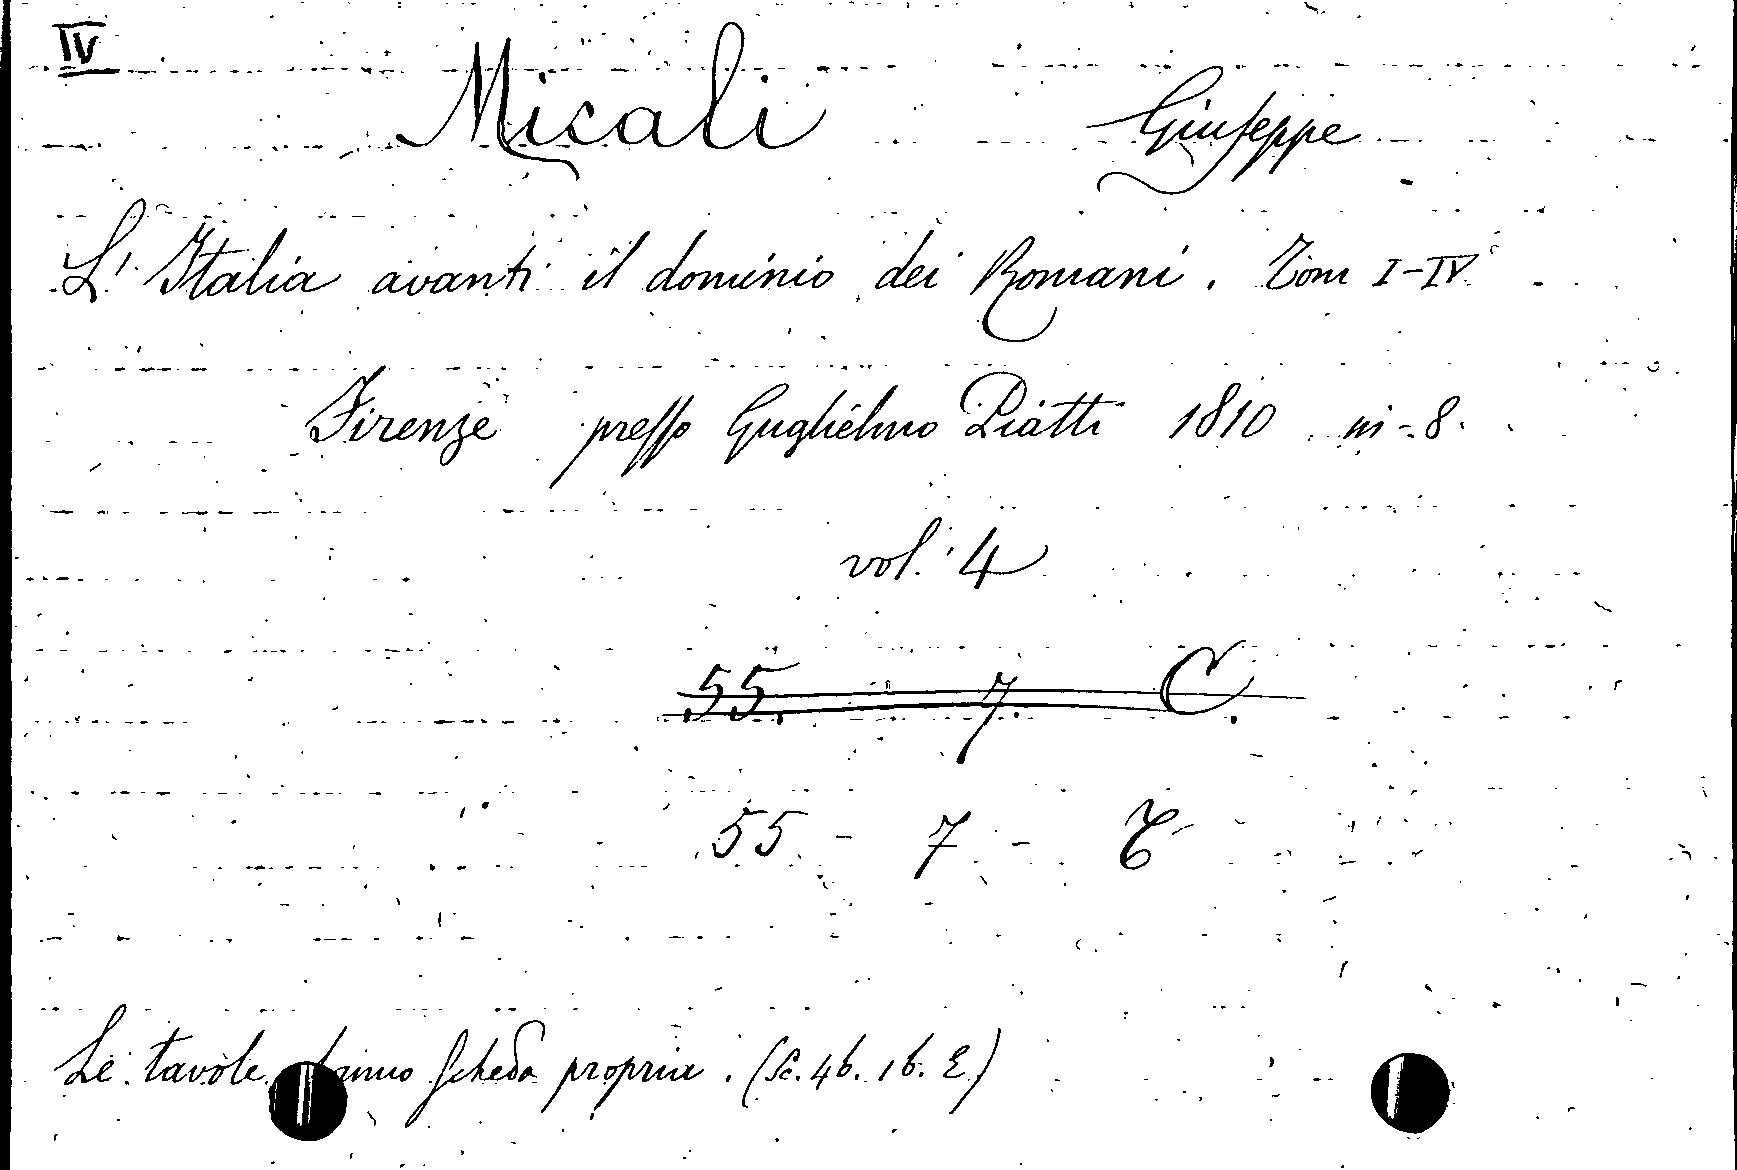 IV
Micali Giuseppe
L'Italia avanti il dominio dei Romani. Tom I-IV
Firenze presso Guglielmo Piatti 1810 in-8.
vol. 4
55. 7. C.
55 - 7 - C
Le tavole hanno scheda propria. (Sc. 46. 16. E)